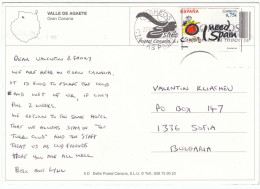 VALLE DE AGAETE
Gran Canaria
ESPAÑA
0,75€
I need
Spain
DEAR VALENTIN & FAMILY
WE ARE HERE IN GRAN CANARIA.
IT IS GOOD TO ESCAPE THE COLD
AND WET OF UK, IF ONLY
FOR 2 WEEKS.
WE RETURN TO THE SAME HOTEL
THAT WE ALWAYS STAY IN "THE
TURBO CLUB" AND THE STAFF
THAT US AS OLD FRIENDS.
HOPE YOU ARE ALL WELL.
BILL AND LYNN
VALENTIN KLIASHEV
PO BOX 147
1336 SOFIA
BULGARIA